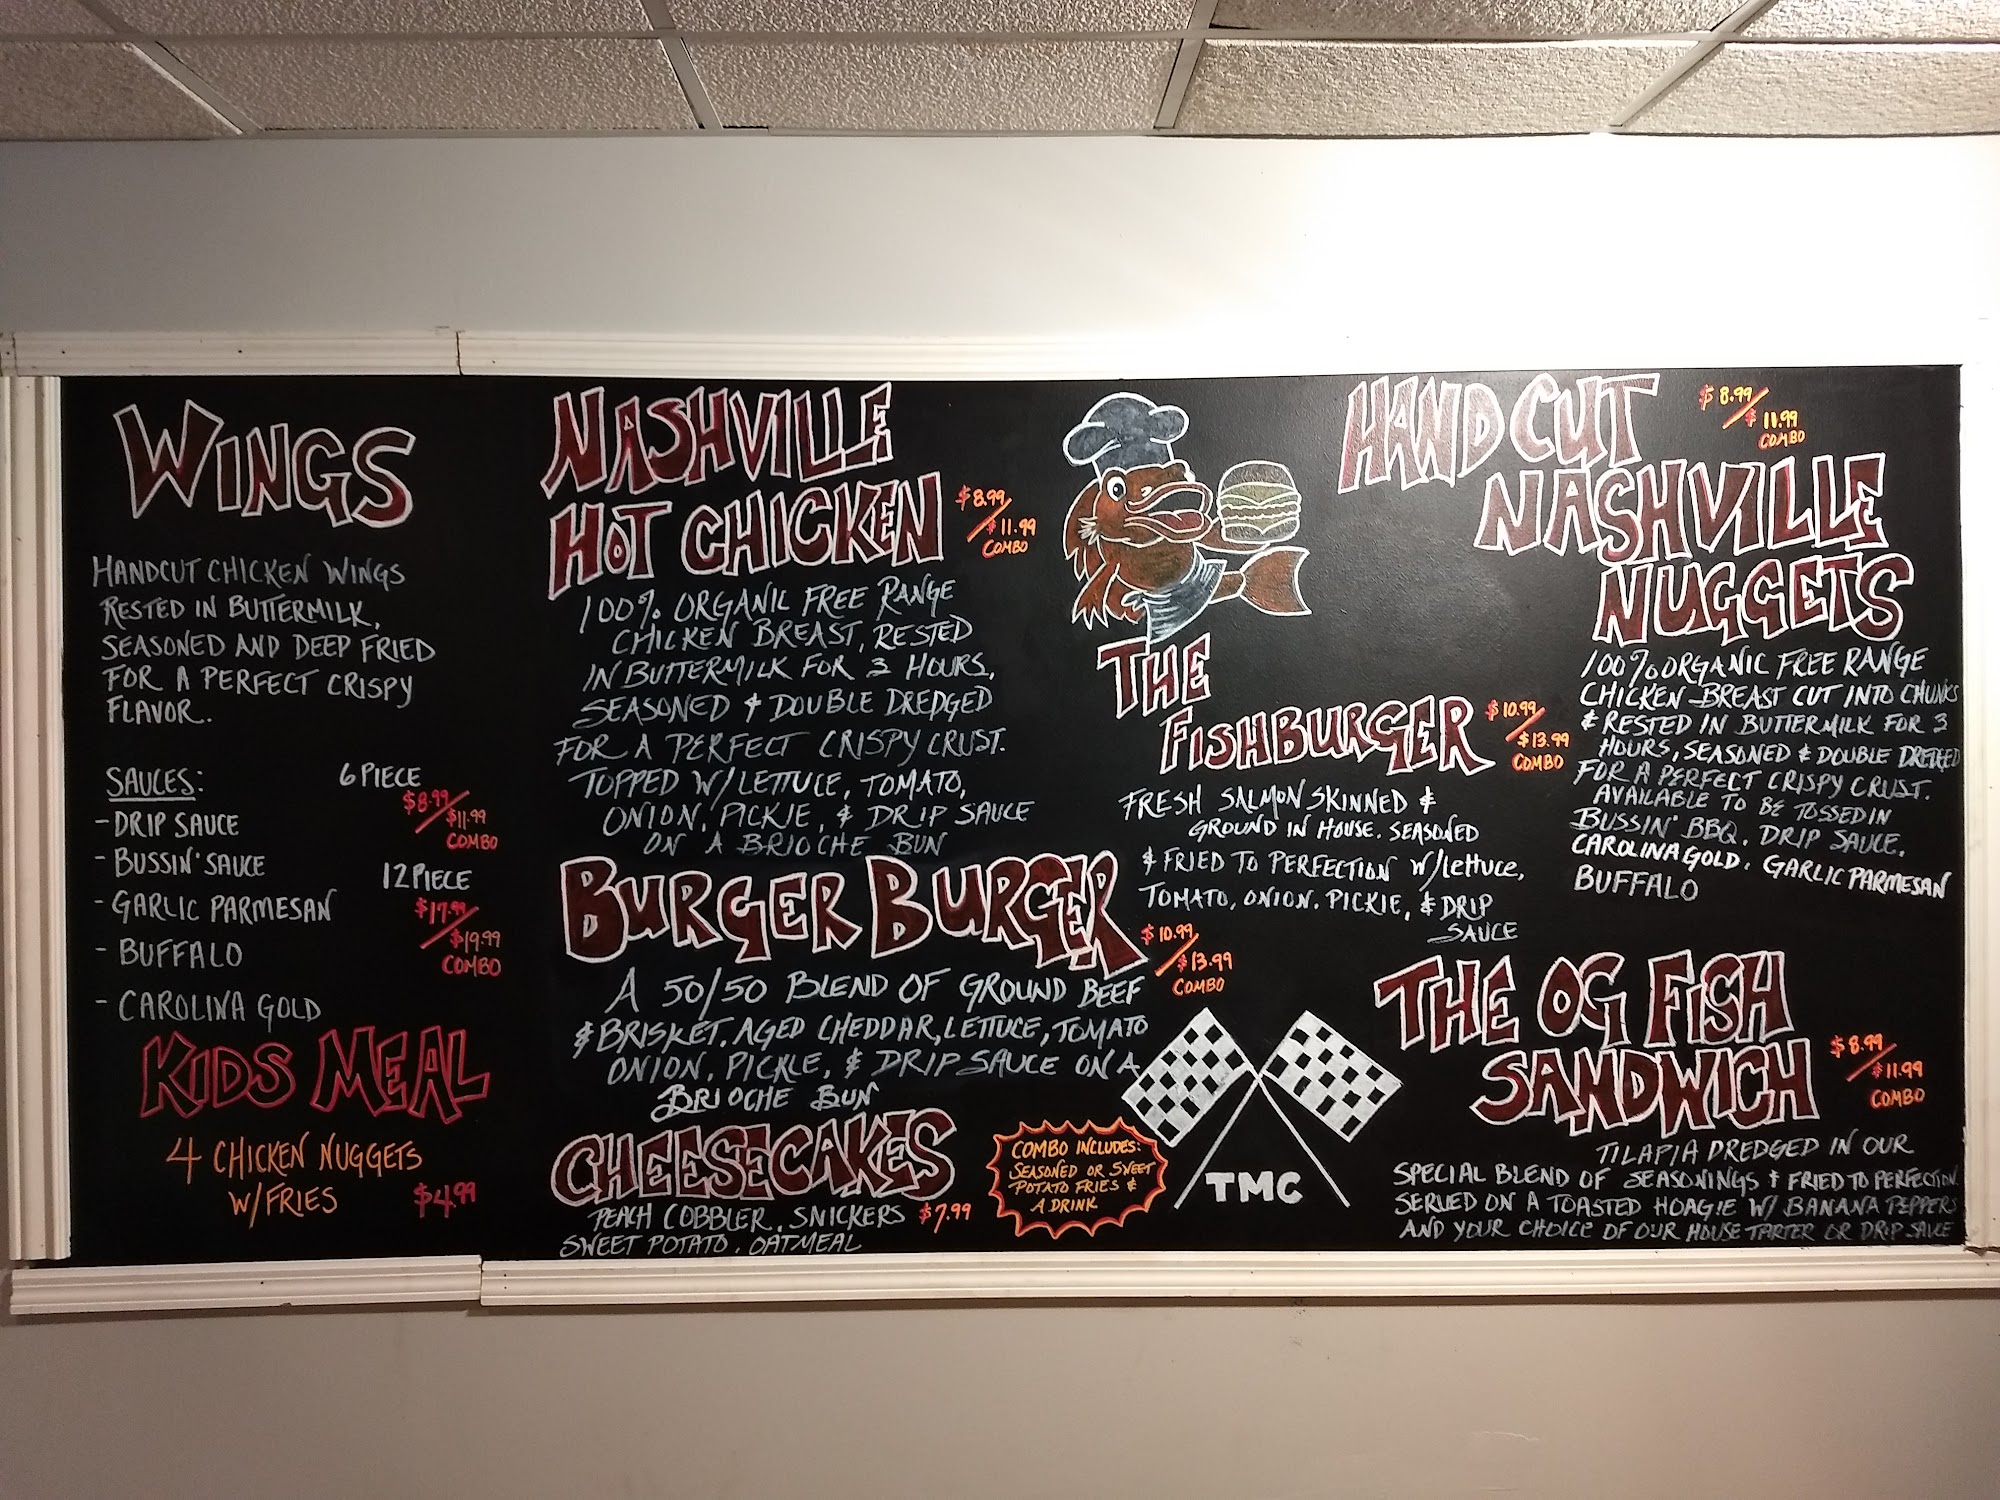 WINGS
HANDCUT CHICKEN WINGS
RESTED IN BUTTERMILK,
SEASONED AND DEEP FRIED
FOR A PERFECT CRISPY
FLAVOR.
SAUCES:
- DRIP SAUCE
- BUSSIN' SAUCE
- GARLIC PARMESAN
- BUFFALO
- CAROLINA GOLD
6 PIECE
$8.99/
$11.99
COMBO
12 PIECE
$17.99/
$19.99
COMBO
KIDS MEAL
4 CHICKEN NUGGETS
W/FRIES
$4.99
NASHVILLE
HOT CHICKEN
$8.99/
$11.99
COMBO
100% ORGANIC FREE RANGE
CHICKEN BREAST, RESTED
IN BUTTERMILK FOR 3 HOURS,
SEASONED & DOUBLE DREDGED
FOR A PERFECT CRISPY CRUST.
TOPPED W/LETTUCE, TOMATO,
ONION, PICKLE, & DRIP SAUCE
ON A BRIOCHE BUN
BURGER BURGER
$10.99/
$13.99
COMBO
A 50/50 BLEND OF GROUND BEEF
& BRISKET. AGED CHEDDAR, LETTUCE, TOMATO
ONION, PICKLE, & DRIP SAUCE ON A
BRIOCHE BUN
CHEESECAKES
PEACH COBBLER, SNICKERS $7.99
SWEET POTATO, OATMEAL
COMBO INCLUDES:
SEASONED OR SWEET
POTATO FRIES &
A DRINK
THE
FISHBURGER
$10.99/
$13.99
COMBO
FRESH SALMON SKINNED &
GROUND IN HOUSE. SEASONED
& FRIED TO PERFECTION W/Lettuce,
TOMATO, ONION, PICKLE, & DRIP
SAUCE
TMC
HAND CUT
NASHVILLE
NUGGETS
$8.99/
$11.99
COMBO
100% ORGANIC FREE RANGE
CHICKEN BREAST CUT INTO CHUNKS
& RESTED IN BUTTERMILK FOR 3
HOURS, SEASONED & DOUBLE DREDGED
FOR A PERFECT CRISPY CRUST.
AVAILABLE TO BE TOSSED IN
BUSSIN' BBQ, DRIP SAUCE,
CAROLINA GOLD, GARLIC PARMESAN
BUFFALO
THE OG FISH
SANDWICH
$8.99/
$11.99
COMBO
TILAPIA DREDGED IN OUR
SPECIAL BLEND OF SEASONINGS & FRIED TO PERFECTION.
SERVED ON A TOASTED HOAGIE W/ BANANA PEPPERS
AND YOUR CHOICE OF OUR HOUSE TARTER OR DRIP SAUCE